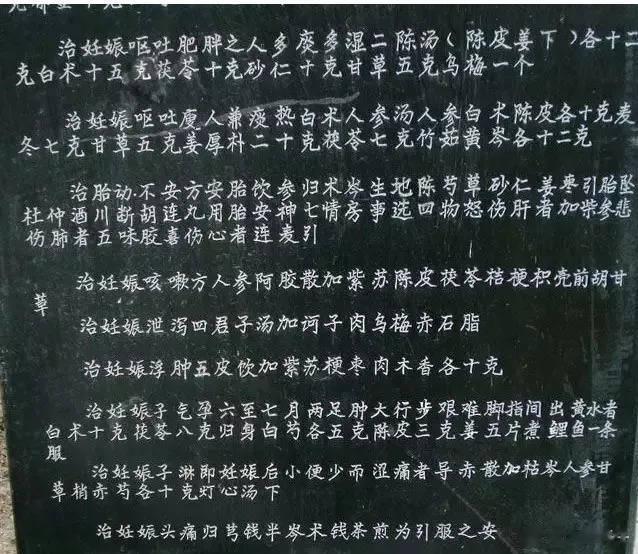 治妊娠呕吐肥胖之人多痰多湿二陈汤(陈皮姜下)各十二
克白术十五克茯苓十克砂仁十克甘草五克乌梅一个
治妊娠呕吐瘦人兼痰热白术人参汤人参白术陈皮各十克麦
冬七克甘草五克姜厚朴二十克茯苓七克竹茹黄岑各十二克
治胎动不安方安胎饮参归术岑生地陈芍草砂仁姜枣引胎坠
杜仲酒川断胡连丸用胎安神七情房事选四物怒伤肝者加柴参悲
伤肺者五味胶喜伤心者连麦引
治妊娠咳嗽方人参阿胶散加紫苏陈皮茯苓桔梗枳壳前胡甘
草
治妊娠泄泻四君子汤加诃子肉乌梅赤石脂
治妊娠浮肿五皮饮加紫苏梗枣肉木香各十克
治妊娠子气孕六至七月两足肿大行步艰难脚指间出黄水者
白术十克茯苓八克归身白芍各五克陈皮三克姜五片煮鲤鱼一条
服
治妊娠子淋即妊娠后小便少而涩痛者导赤散加枯岑人参甘
草梢赤芍各十克灯心汤下
治妊娠头痛归芎钱半岑术钱茶煎为引服之安